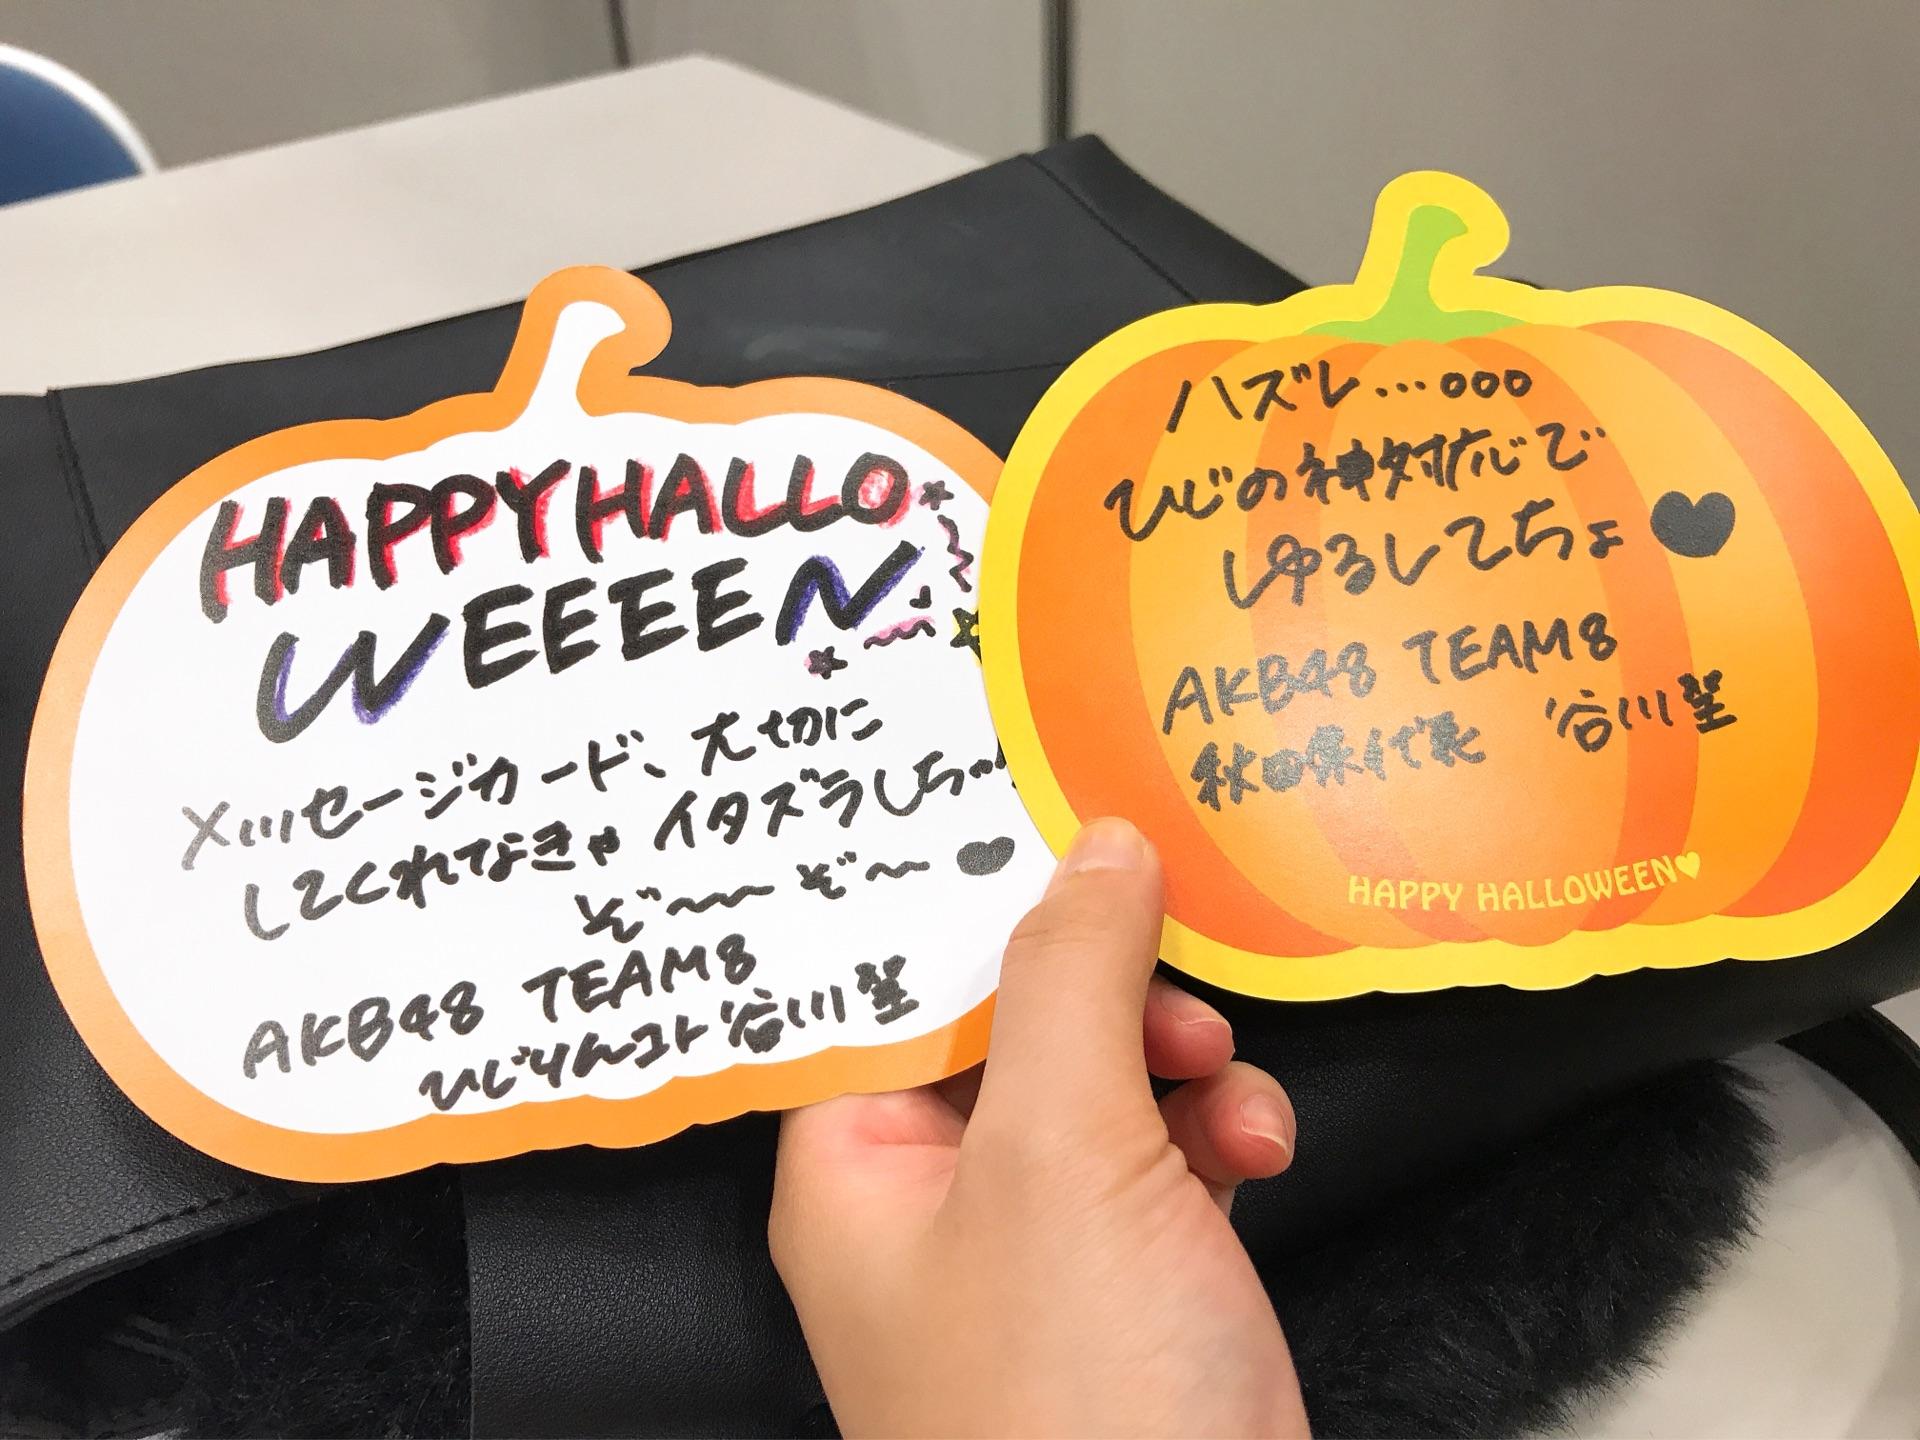 HAPPYHALLO
WEEEEN
メッセージカード、大切に
してくれなきゃ イタズラしちゃ
ぞ〜〜 ぞ〜〜 ♥
AKB48 TEAM8
ひじりんコト 谷川聖
ハズレ...ooo
ひじの神対応で
ゆるしてちょ ♥
AKB48 TEAM8
秋田県代表 谷川聖
HAPPY HALLOWEEN♥